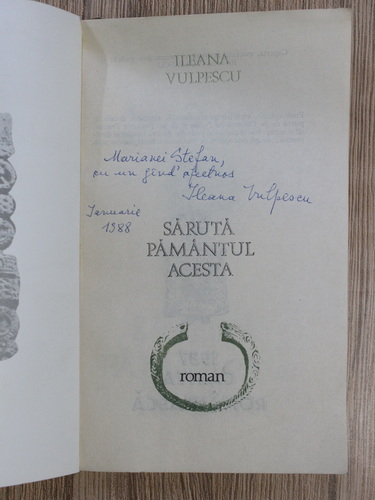 ILEANA
VULPESCU
Marianei Stefan,
cu un gînd afectuos
Ileana Vulpescu
Ianuarie
1988
SĂRUTĂ
PĂMÂNTUL
ACESTA
roman